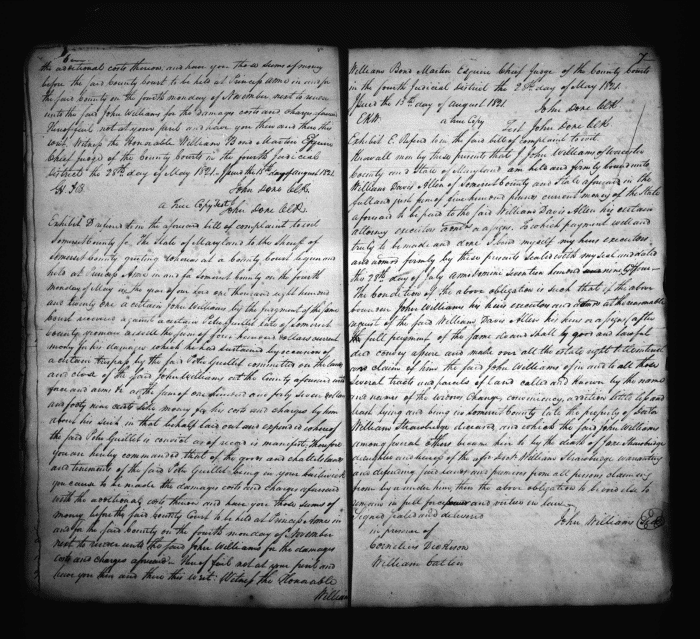 6
the additional costs thereon and have you those sums of money
before the said County Court to be held at Princess Anne in and for
the said County on the fourth monday of November next to render
unto the said John Williams for the damages costs and charges aforesaid
Hereof fail not at your peril and have you then and there this
writ. Witness the Honorable William Bond Martin Esquire
Chief Judge of the County Court in the fourth Judicial
District the 28th day of May 1821. Issued the 13th day of August 1821.
John Done Clk
A True Copy Test John Done Clk
Exhibit D referred to in the aforesaid bill of complaint to wit
Somerset County Sc. The State of Maryland to the Sheriff of
Somerset County greeting Whereas at a County Court begun and
held at Princess Anne in and for Somerset County on the fourth
monday of May in the year of our Lord one thousand eight hundred
and twenty one a certain John Williams by the judgment of the same
Court recovered against a certain Peter Guillet late of Somerset
County yeoman as well the sum of four hundred dollars current
money for his damages which he had sustained by occasion of
a certain trespass by the said Peter Guillet committed on the land
and close of the said John Williams at the County aforesaid with
force and arms &c as the sum of one hundred and forty seven dollars
and forty nine cents like money for his costs and charges by him
about his suit in that behalf laid out and expended whereof
the said Peter Guillet is convict as of record is manifest, Therefore
you are hereby commanded that of the goods and chattels lands
and tenements of the said Peter Guillet being in your bailiwick
you cause to be made the damages costs and charges aforesaid
with the additional costs thereon and have you those sums of
money before the said County Court to be held at Princess Anne in
and for the said County on the fourth monday of November
next to render unto the said John Williams for the damages
costs and charges aforesaid. Hereof fail not at your peril and
have you then and there this Writ. Witness the Honorable
William
7
William Bond Martin Esquire Chief Judge of the County Court
in the fourth Judicial District the 28th day of May 1821.
Issued the 13th day of August 1821. John Done Clk
a True Copy
Test John Done Clk
Exhibit E. Referred to in the said bill of complaint to wit.
Know all men by these presents that I John Williams of Worcester
County and State of Maryland am held and firmly bound unto
William Davis Allen of Somerset County and State aforesaid in the
full and just sum of five hundred pounds current money of the State
aforesaid to be paid to the said William Davis Allen his certain
attorney executors admrs or assigns. To which payment well and
truly to be made and done I bind myself my heirs executors
and admrs firmly by these presents sealed with my seal and dated
this 28th day of July Annodomini Seventeen hundred and
The Condition of the above obligation is such that if the above
bounden John Williams his heirs executors and admrs at the reasonable
request of the said William Davis Allen his heirs or assigns, after
the full payment of the same deans shall by good and lawful
deed convey assure and make over all the estate right title interest
and claim of him the said John Williams of in and to all those
several tracts and parcels of land called and known by the name
and names of the Wrong Change, conveniency, addition little sep and
beach lying and being in Somerset County late the property of Doctor
William Strawbridge deceased, and which the said John Williams
among several others became him to by the death of Jane Strawbridge
daughter and heiress of the afsd Doctr William Strawbridge warranting
and defending said land and premises from all persons claiming
from by or under him, then the above obligation to be void else to
remain in full force power and virtue in law.
Signed sealed and delivered
John Williams Seal
in presence of
Cornelius Dickeson
William Catlin